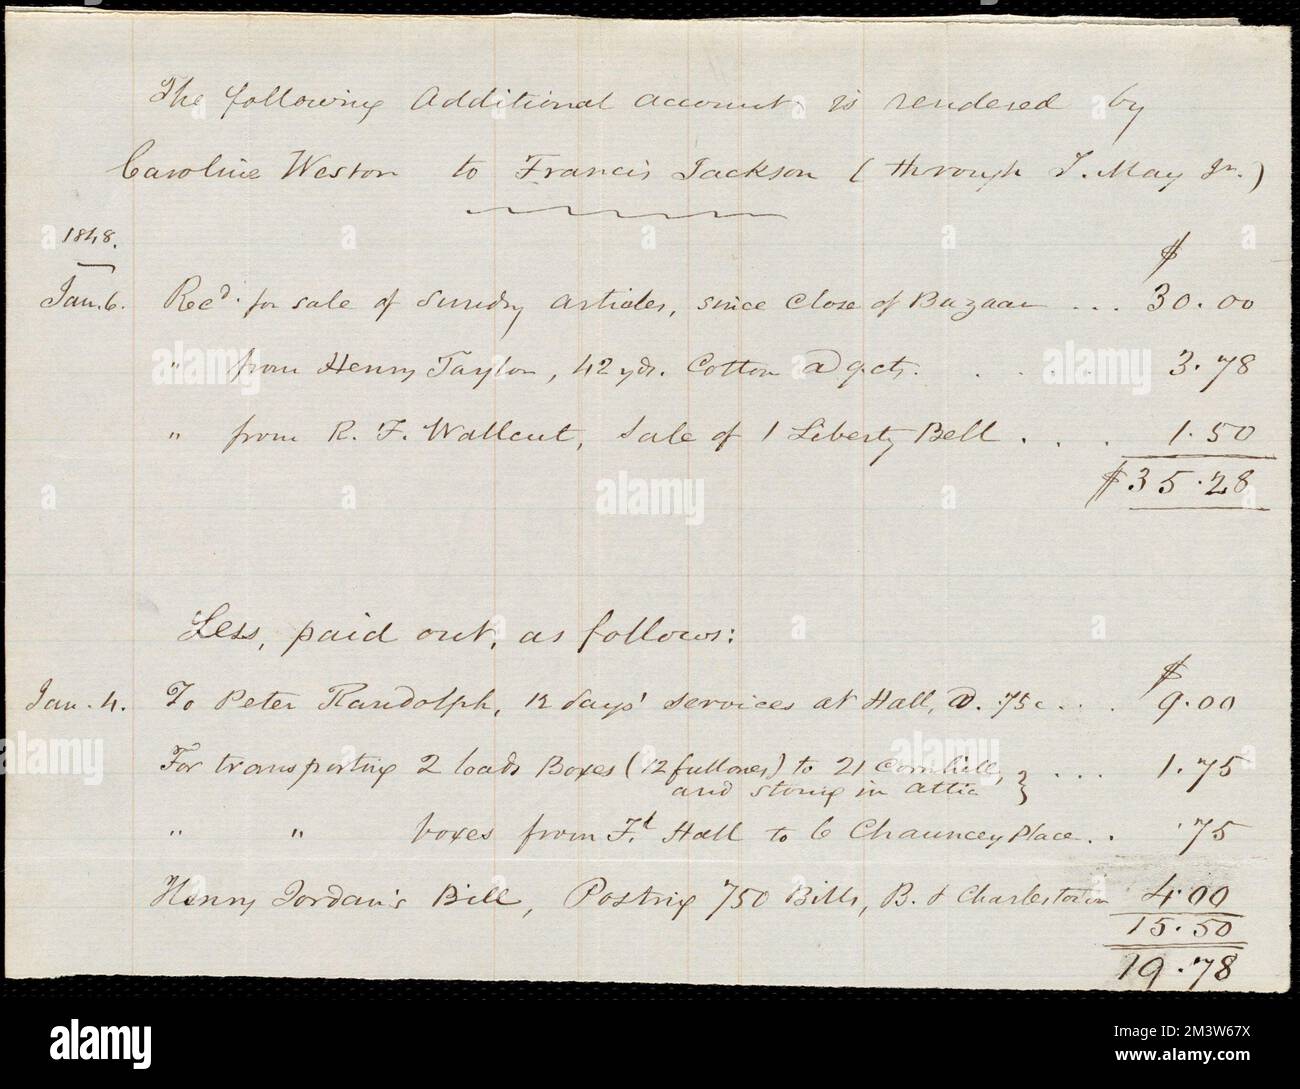 The following Additional account, is rendered by
Caroline Weston to Francis Jackson (through S. May Jr.)
1848. $
Jan. 6. Recd. for sale of Sundry articles, since Close of Bazaar ... 30.00
" from Henry Taylor, 42 yds. Cotton @ 9 cts. . . . . . 3.78
" from R. F. Wallcut, Sale of 1 Liberty Bell . . . . 1.50
$35.28
Less, paid out, as follows:
$
Jan. 4. To Peter Randolph, 12 days' services at Hall, @ .75c ... 9.00
For transporting 2 loads Boxes (12 full ones) to 21 Cornhill, } ... 1.75
and storing in attic
" " boxes from Fl. Hall to 6 Chauncey Place .. .75
Henry Jordan's Bill, Posting 750 Bills, B. & Charlestown 4.00
15.50
19.78
alamy
a
alamy
Image ID: 2M3W67X
www.alamy.com